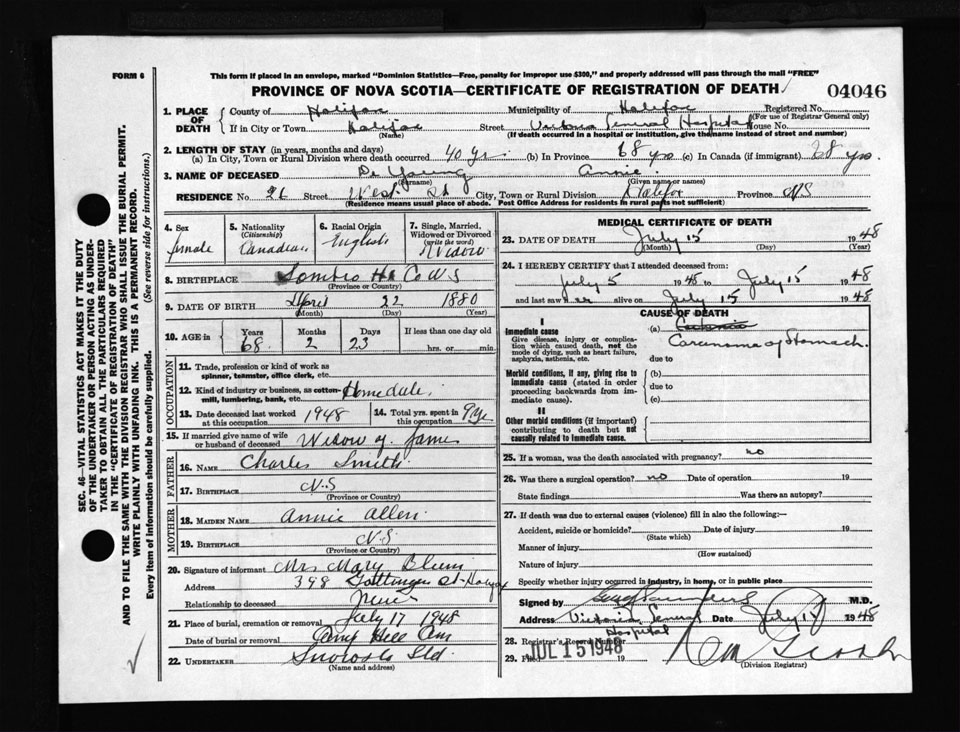 FORM 6
This form if placed in an envelope, marked "Dominion Statistics—Free, penalty for improper use $300," and properly addressed will pass through the mail "FREE"
PROVINCE OF NOVA SCOTIA—CERTIFICATE OF REGISTRATION OF DEATH
04046
1. PLACE OF DEATH County of Halifax Municipality of Halifax Registered No.
(For use of Registrar General only)
If in City or Town Halifax Street Victoria General Hospital House No.
(Name) (If death occurred in a hospital or institution, give the name instead of street and number)
2. LENGTH OF STAY (in years, months and days)
(a) In City, Town or Rural Division where death occurred 40 yrs. (b) In Province 68 yrs (c) In Canada (if immigrant) 68 yrs.
3. NAME OF DECEASED De Young Annie
(Surname) (Given name or names)
RESIDENCE No. 26 Street West St City, Town or Rural Division Halifax Province N.S
(Residence means usual place of abode. Post Office Address for residents in rural parts not sufficient)
4. Sex female
5. Nationality (Citizenship) Canadian
6. Racial Origin English
7. Single, Married, Widowed or Divorced (write the word) Widow
8. BIRTHPLACE Sambro Hx Co N S
(Province or Country)
9. DATE OF BIRTH April 22 1880
(Month) (Day) (Year)
10. AGE in Years 68 Months 2 Days 23 If less than one day old hrs. or min.
OCCUPATION
11. Trade, profession or kind of work as spinner, teamster, office clerk, etc.
12. Kind of industry or business, as cotton-mill, lumbering, bank, etc.
13. Date deceased last worked at this occupation 1948
14. Total yrs. spent in this occupation
15. If married give name of wife or husband of deceased Widow of James
FATHER
16. NAME Charles Smith
17. BIRTHPLACE N.S
(Province or Country)
MOTHER
18. MAIDEN NAME Annie Allen
19. BIRTHPLACE N.S
(Province or Country)
20. Signature of informant Mrs Mary Blum
Address 398 Gottingen St Halifax
Relationship to deceased
21. Place of burial, cremation or removal July 17 1948
Date of burial or removal Camp Hill Cem
22. UNDERTAKER Snows Ltd.
(Name and address)
MEDICAL CERTIFICATE OF DEATH
23. DATE OF DEATH July 15 1948
(Month) (Day) (Year)
24. I HEREBY CERTIFY that I attended deceased from:
July 5 1948 to July 15 1948
and last saw her alive on July 15 1948
CAUSE OF DEATH
I
Immediate cause
Give disease, injury or complication which caused death, not the mode of dying, such as heart failure, asphyxia, asthenia, etc.
(a)
Carcinoma of Stomach
due to
Morbid conditions, if any, giving rise to immediate cause (stated in order proceeding backwards from immediate cause)
(b)
due to
(c)
II
Other morbid conditions (if important) contributing to death but not causally related to immediate cause.
25. If a woman, was the death associated with pregnancy? no
26. Was there a surgical operation? no Date of operation 19
State findings Was there an autopsy?
27. If death was due to external causes (violence) fill in also the following—
Accident, suicide or homicide? Date of injury 19
(State which)
Manner of injury
(How sustained)
Nature of injury
Specify whether injury occurred in industry, in home, or in public place
Signed by M.D.
Address Victoria General Hospital Date July 15 1948
28. Registrar's Record Number
29. Filed JUL 15 1948 19
(Division Registrar)
SEC. 46—VITAL STATISTICS ACT MAKES IT THE DUTY
OF THE UNDERTAKER OR PERSON ACTING AS UNDERTAKER TO OBTAIN ALL THE PARTICULARS REQUIRED
IN THE "CERTIFICATE OF REGISTRATION OF DEATH"
AND TO FILE THE SAME WITH THE DIVISION REGISTRAR WHO SHALL ISSUE THE BURIAL PERMIT.
WRITE PLAINLY WITH UNFADING INK. THIS IS A PERMANENT RECORD.
Every item of information should be carefully supplied. (See reverse side for instructions.)